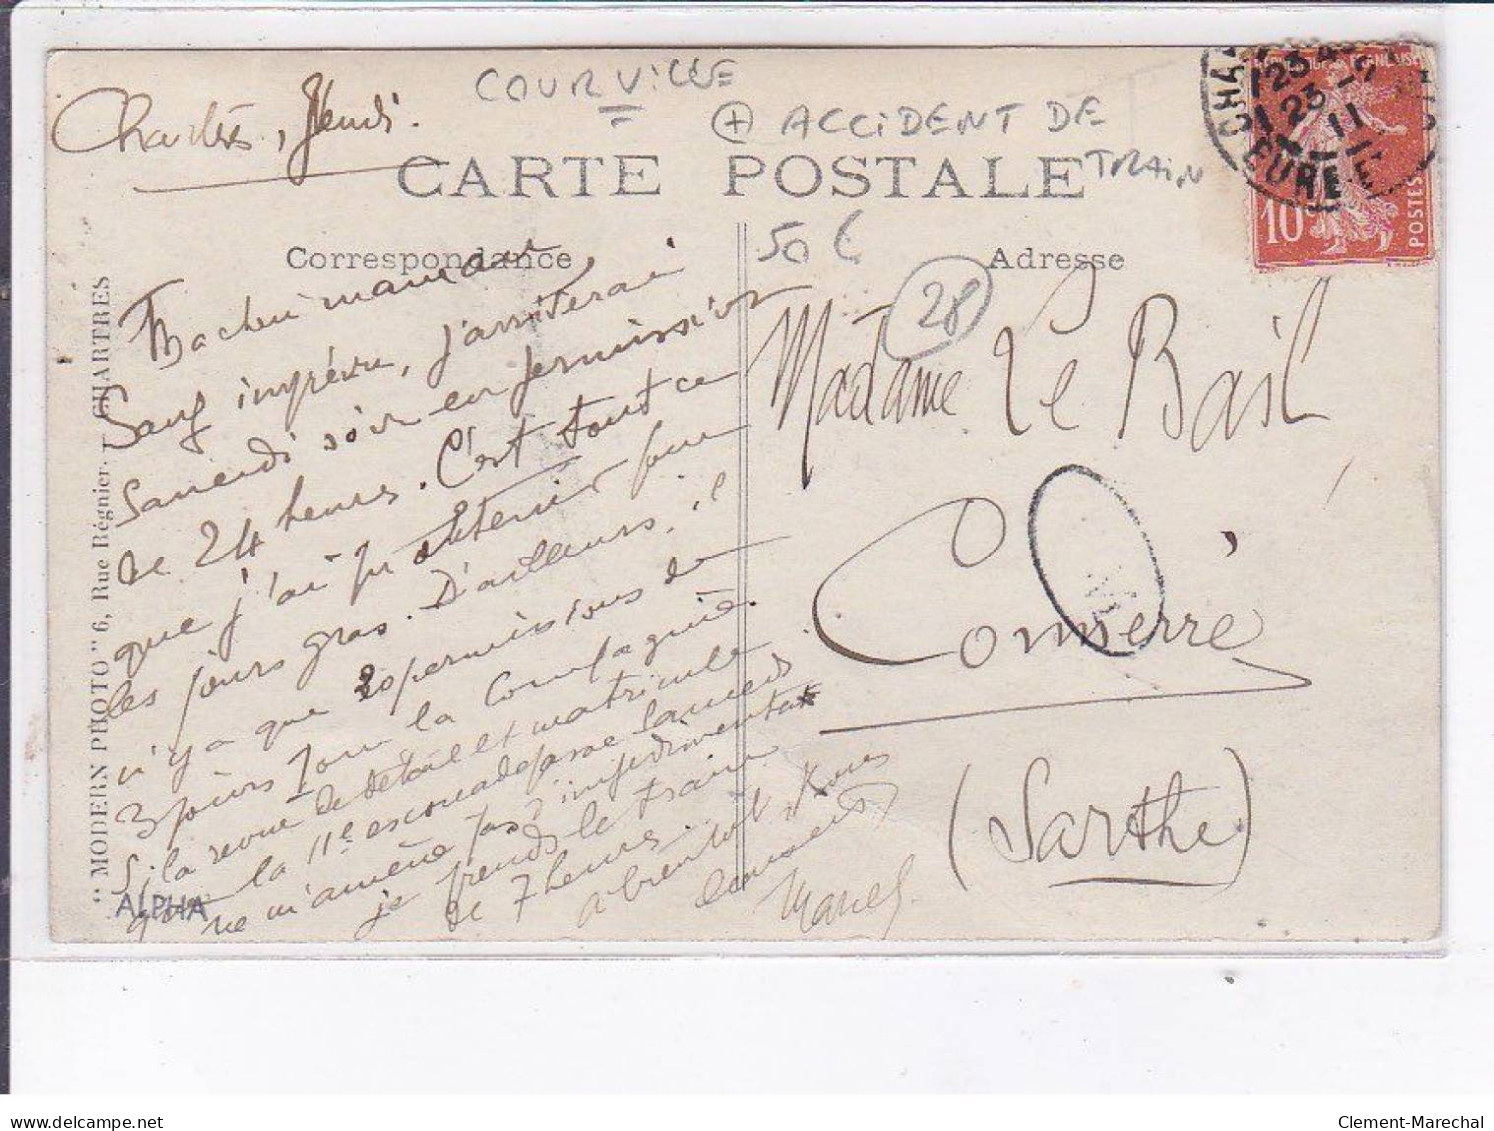 COURVILLE
+ ACCIDENT DE
TRAIN
Chartres, Jeudi.
CARTE POSTALE
50 €
Correspondance
Adresse
28
Ma chère maman
Sauf imprévu, j'arriterai
Samedi soir en permission
de 24 heures. C'est tout ce
que j'ai pu obtenir pour
les jours gras. D'ailleurs, il
n'y a que 20 permissions de
3 jours pour la Compagnie.
Si la revue de détail et matricule
que la 11e escouade passe Samedi
ne m'amène pas d'impedimenta
je prends le train
de 7 heures.
à bientôt, vous
Marcel.
Madame Le Basil
Connerré
(Sarthe)
"MODERN PHOTO" 6, Rue Régnier. - CHARTRES
ALPHA
CHA
23
23-2
11
EURE
10c
POSTES
Clement-Marechal
delcampe.net